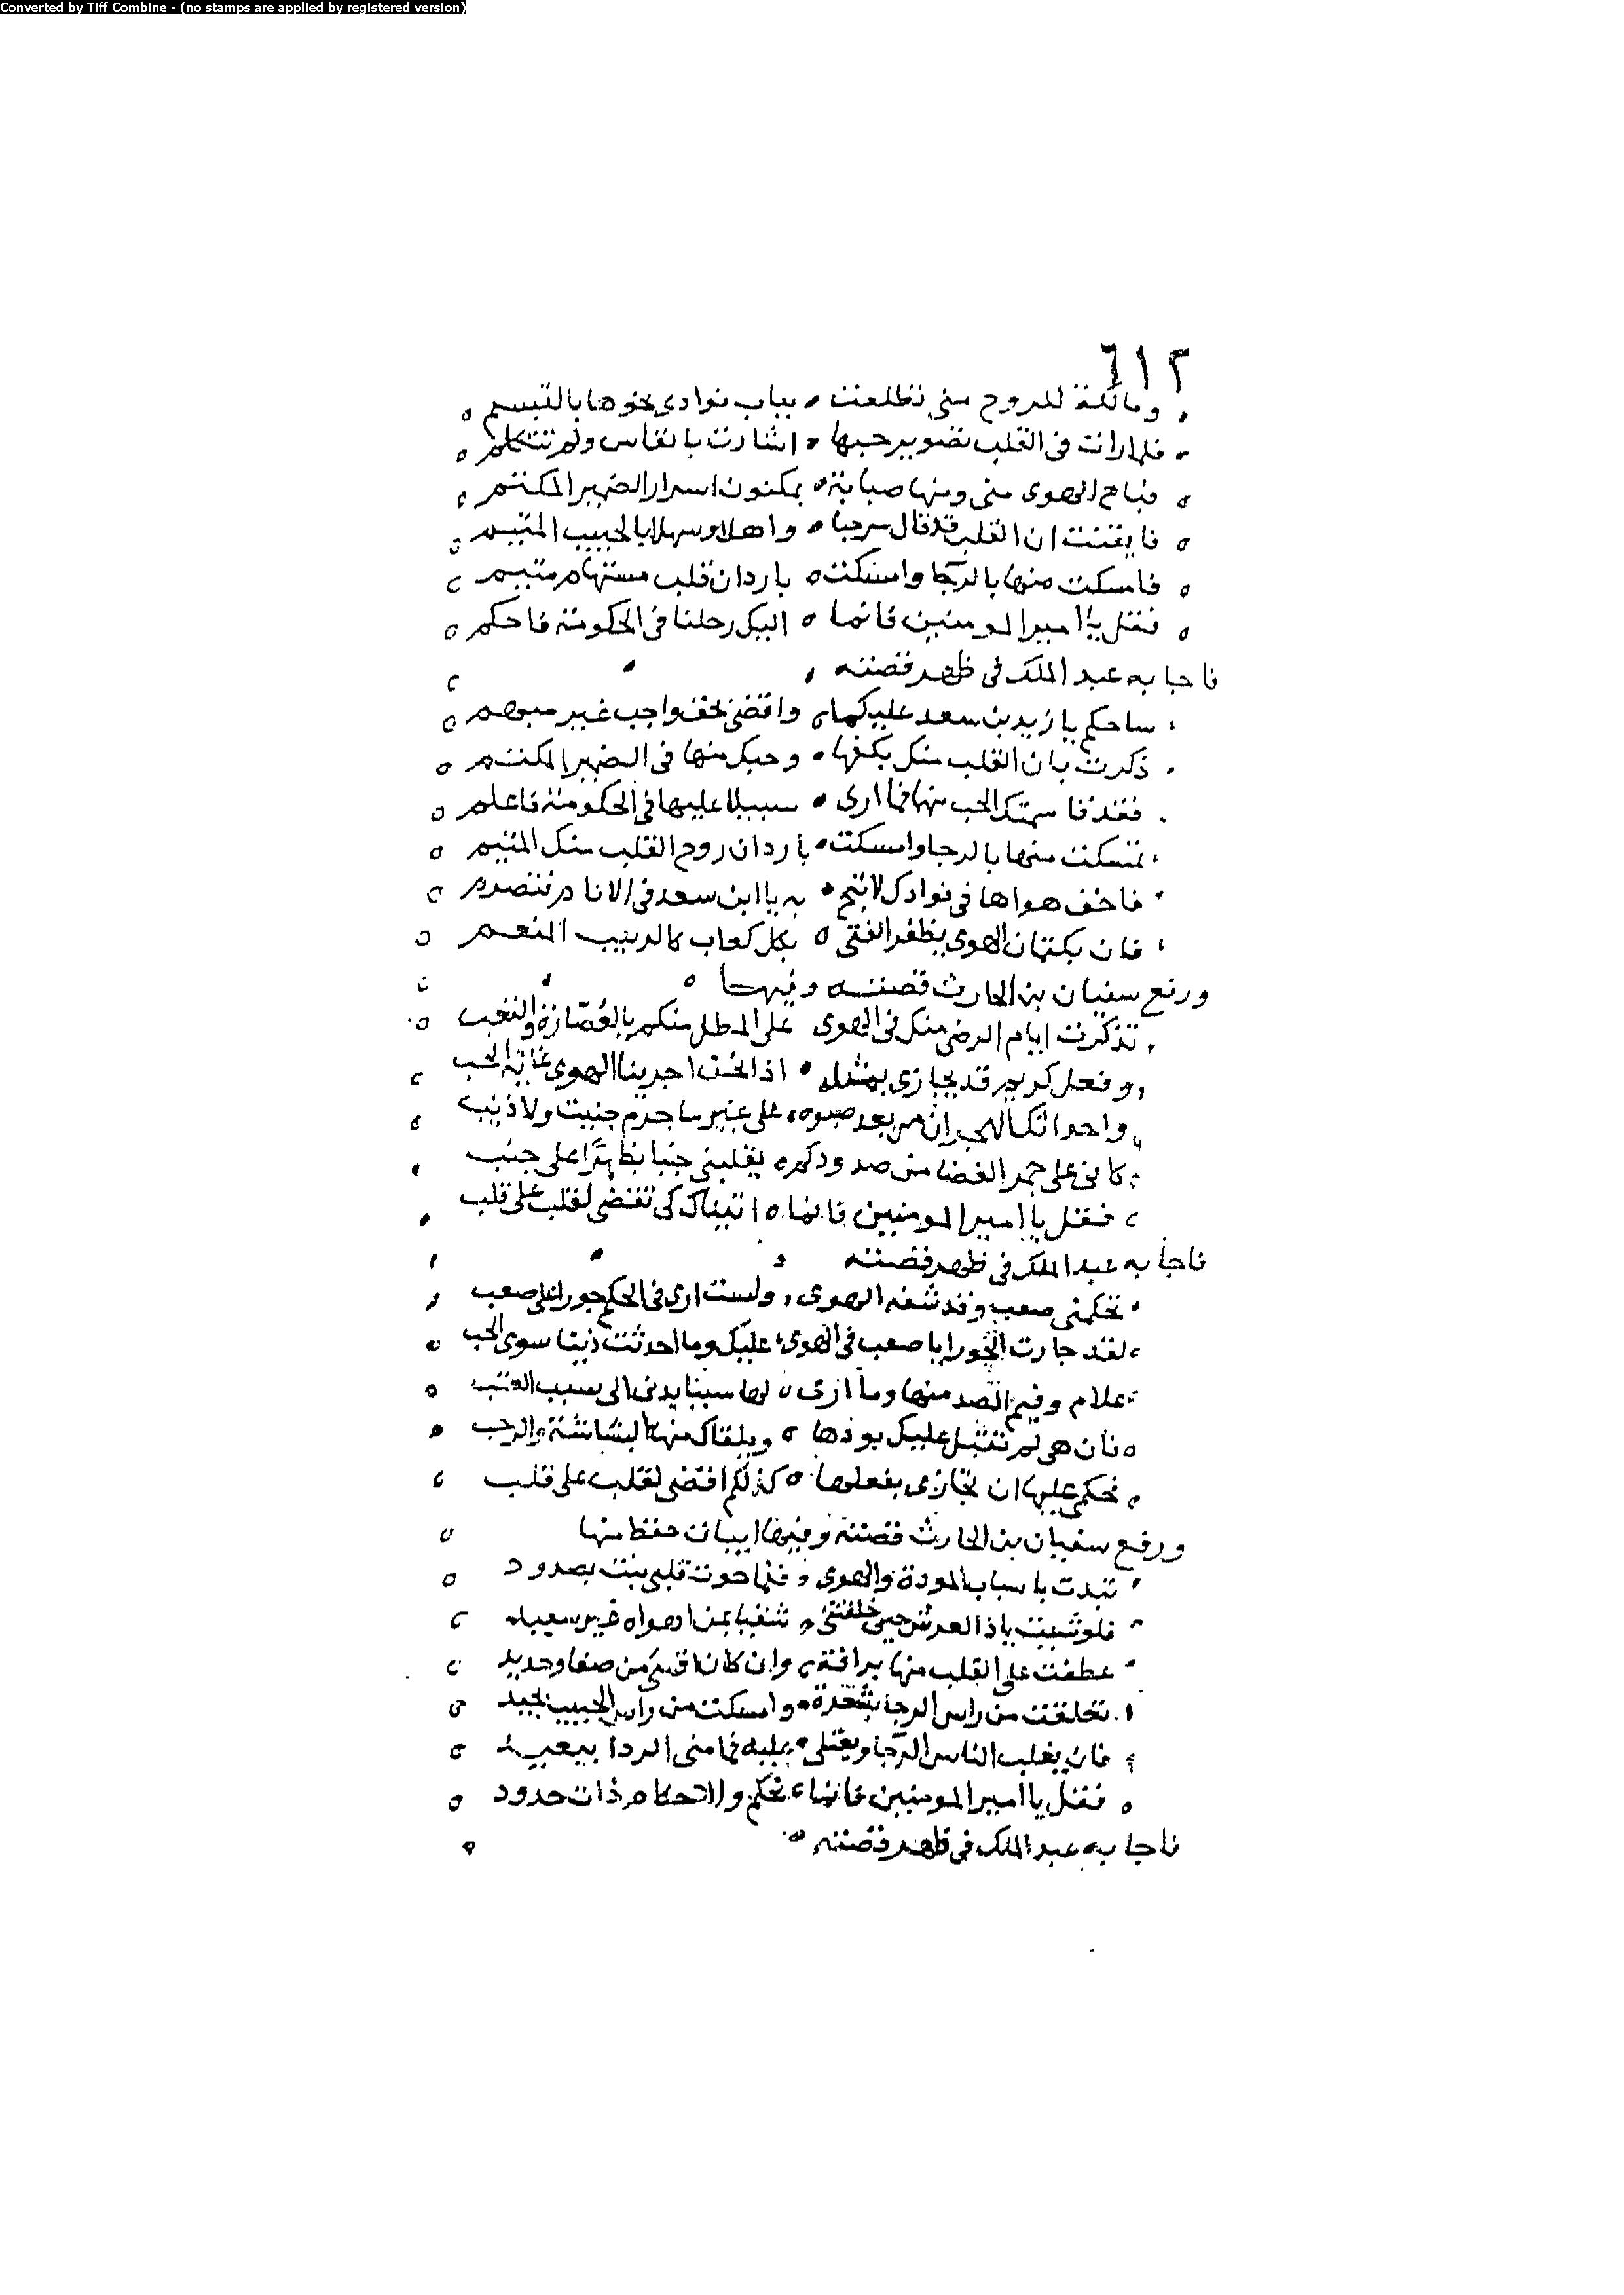 Converted by Tiff Combine - (no stamps are applied by registered version)
٦١٢
ومالكة للروح منى تطلعت بباب فوادى نحوها بالتبسم
فلما رات فى القلب تصوير حبها اشارت بانفاس ولم تتكلم
فباح الهوى منى ومنها صبابة بمكنون اسرار الضمير المكتم
فايقنت ان القلب قد قال مرحبا واهلا وسهلا بالحبيب المتيم
فامسكت منها بالرجا وامسكت باردان قلب مستهام متيم
فقل يا امير المومنين فانما اليك رحلنا فى الحكومة فاحكم
فاجابه عبد الملك فى ظهر قصته
ساحكم يا زيد بن سعد عليكما واقضى بحق واجب غير مبهم
ذكرت بان القلب منك بكفها وحبك منها فى الضمير المكتم
فقد قاسمتك الحب منها فما ارى سبيلا عليها فى الحكومة فاعلم
تمسكت منها بالرجا وامسكت باردان روح القلب منك المتيم
فاخف هواها فى فوادك لا تبح به يا ابن سعد فى الانام فتصرم
فان بكتمان الهوى يظفر الفتى بكل كعاب كالربيب المنعم
ورفع سفيان بن الحارث قصته وفيها
تذكرت ايام الرضى منك فى الهوى على المطل منكم بالعصارة والتعب
وفعل كريم قد يجازى بمثله اذا نحن اجرينا الهوى غاية الحب
على غير ما جرم جنيت ولا ذنب
كانى على جمر الغضا من صدودكم يقلبنى جنبا بظهر على جنب
فقل يا امير المومنين فانما اتيناك كى تقضى لقلب على قلب
فاجابه عبد الملك فى ظهر قصته
تحكمنى صعب وقد شفه الهوى ولست ارى فى الحكم جورا على صعب
لقد جارت الحورا يا صعب فى الهوى عليك وما احدثت ذنبا سوى الحب
علام وفيم الصد منها وما ارى لها سببا يدنى الى سبب العتب
فان هى لم تقبل عليك بودها ويلقاك منها بالبشاشة والرحب
فحكمى عليها ان تجازى بفعلها كذلكم اقضى لقلب على قلب
ورفع سفيان بن الحارث قصته وفيها ابيات حفظ منها
تبدت باسباب المودة والهوى فلما حوت قلبى بصدود
فلو شيت يا ذا العرش حين خلقتنى شقيا بمن اهواه غير سعيد
عطفت على القلب منها برافة وان كان اقسى من صفا وحديد
تعلقت من راس الرجا بشعرة وامسكت من راس الحبيب بجيد
فان يغلب الياس الرجا ويعتلى عليه فما منى الردا ببعيد
فقل يا امير المومنين فانما تحكم والاحكام ذات حدود
فاجابه عبد الملك فى ظهر قصته